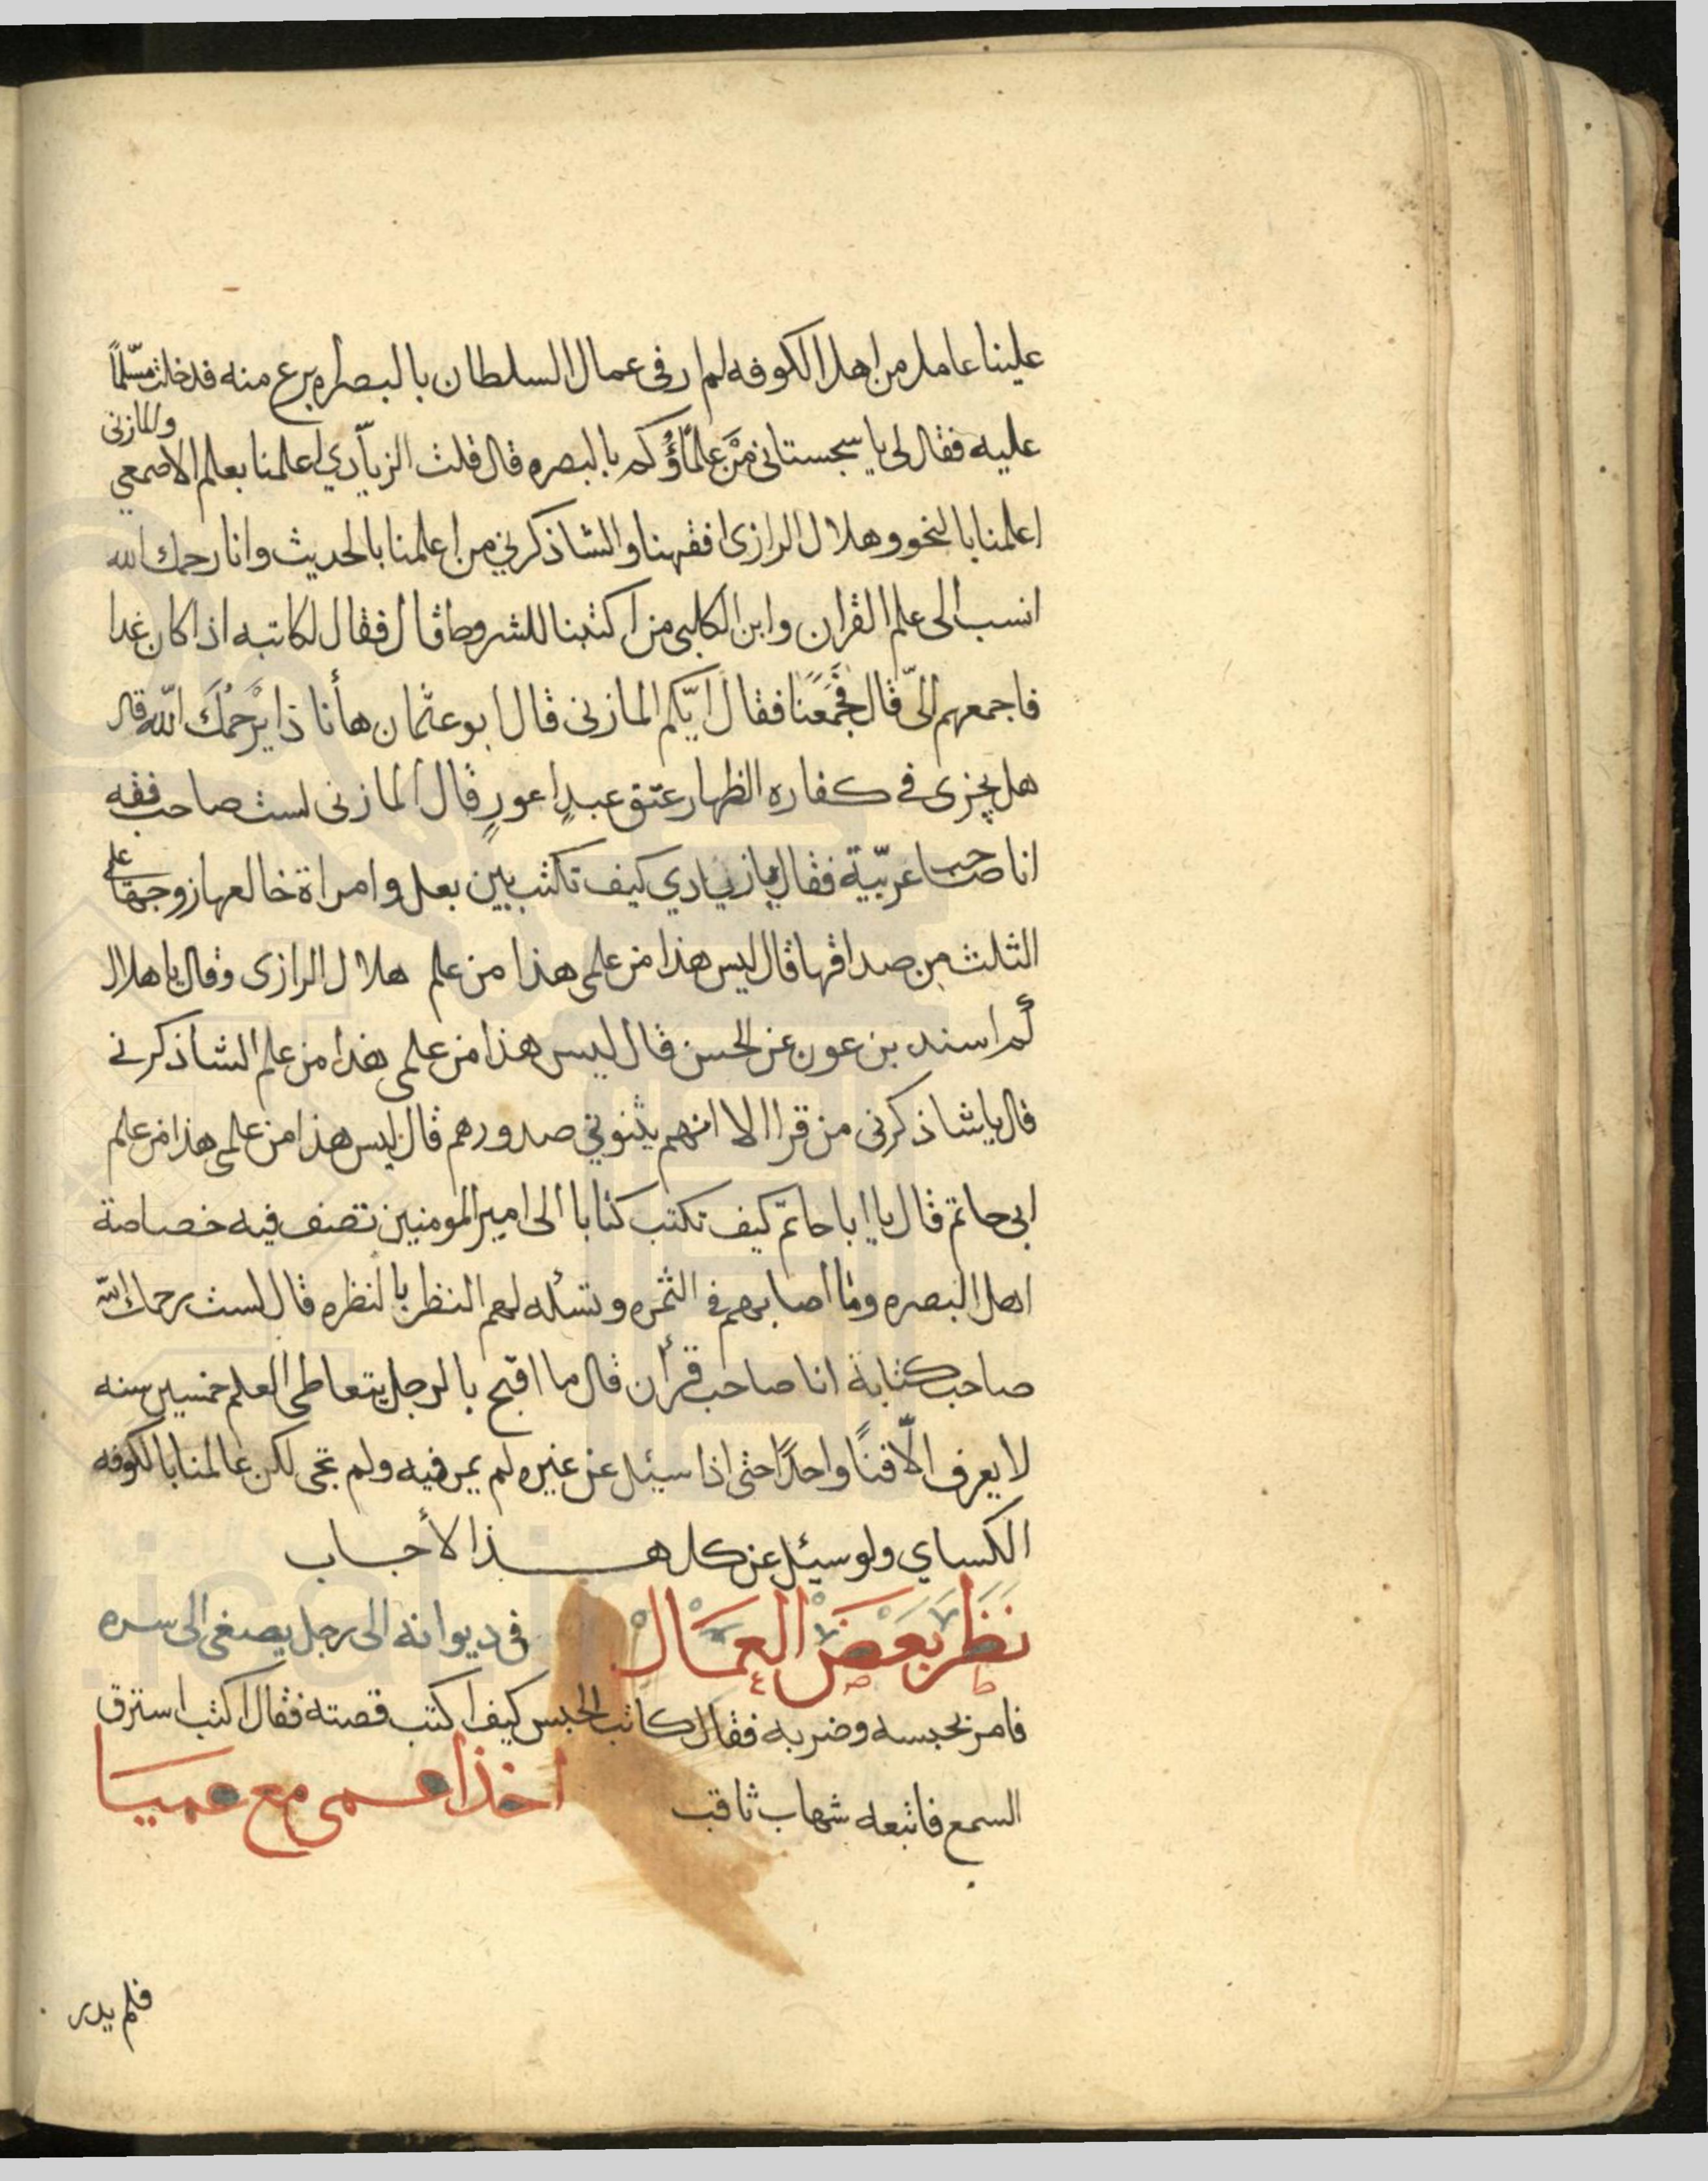 علينا عامل من اهل الكوفه لم ار فى عمال السلطان بالبصره برع منه فدخلت مسلّماً
عليه فقال لى يا سجستانى مَنْ علمَاؤُكم بالبصره قال قلت الزيّادي اعلمنا بعلم الاصمعي والمازنى
اعلمنا بالنحو وهلال الرازى افقهنا والشاذكرني من اعلمنا بالحديث وانا رحمك الله
انسب الى علم القران وابن الكلبى من اكتبنا للشروط قال فقال لكاتبه اذا كان غدا
فاجمعهم الىّ قال فجَمَعَنَا فقال ايّكم المازنى قال ابو عثمان ها أنا ذا يَرْحَمُكَ اللّه قال
هل يجزى فى كفاره الظهار عتق عبدٍ اعورٍ قال المازنى لست صاحب فقه
انا صاحب عربيّة فقال يا زيادي كيف تكتب بين بعل وامراة خالعها زوجها على
الثلث من صداقها قال ليس هذا من علمى هذا من علم هلال الرازى وقال يا هلال
لم اسند بن عون عن الحسن قال ليس هذا من علمى هذا من علم الشاذكرنى
قال يا شاذكرنى من قرا الا انهم يثنونى صدورهم قال ليس هذا من علمى هذا من علم
ابى حاتم قال يا ابا حاتم كيف تكتب كتابا الى امير المومنين تصف فيه خصاصة
اهل البصره وما اصابهم فى الثمره وتسئله لهم النظر بالنظره قال لست رحمك اللّه
صاحب كتابة انا صاحب قرأن قال ما اقبح بالرجل يتعاطى العلم خمسين سنه
لا يعرف الّا فنًا واحدًا حتى اذا سئيل عن غيره لم يمر فيه ولم يحى لكن عالمنا بالكوفه
الكساي ولو سيئل عن كل هذا لأجاب
نَظَر بَعض العِمَال فى ديوانه الى رجل يصغى الى سره
فامر بحبسه وضربه فقال كاتب الحبس كيف اكتب قصته فقال اكتب استرق
السمع فاتبعه شهاب ثاقب اخذ اعمى مع عميَا
فلم يدر